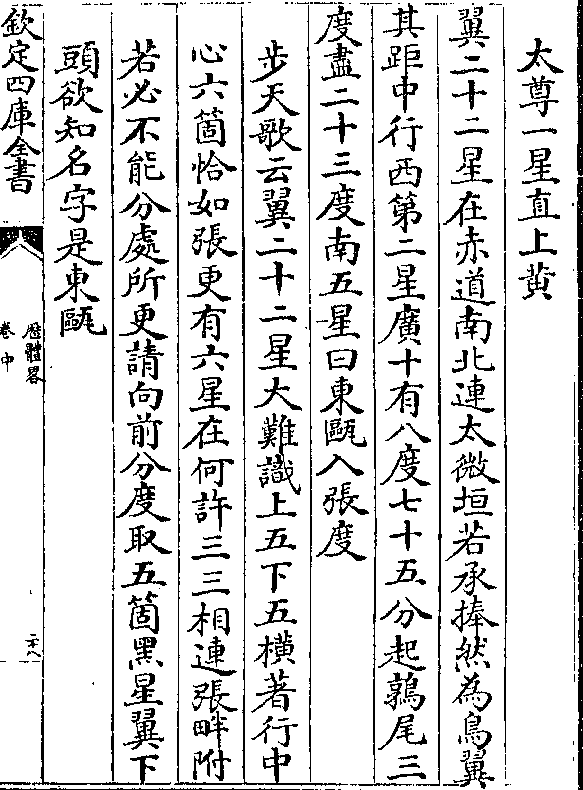 太尊一星直上黄
翼二十二星在赤道南北連太微垣若承捧然為鳥翼
其距中行西第二星廣十有八度七十五分起鶉尾三
度盡二十三度南五星曰東甌入張度
步天歌云翼二十二星大難識上五下五橫著行中
心六箇恰如張更有六星在何許三三相連張畔附
若必不能分處所更請向前分度取五箇黑星翼下
頭欲知名字是東甌
欽定四庫全書
歷體畧
卷中
二十八